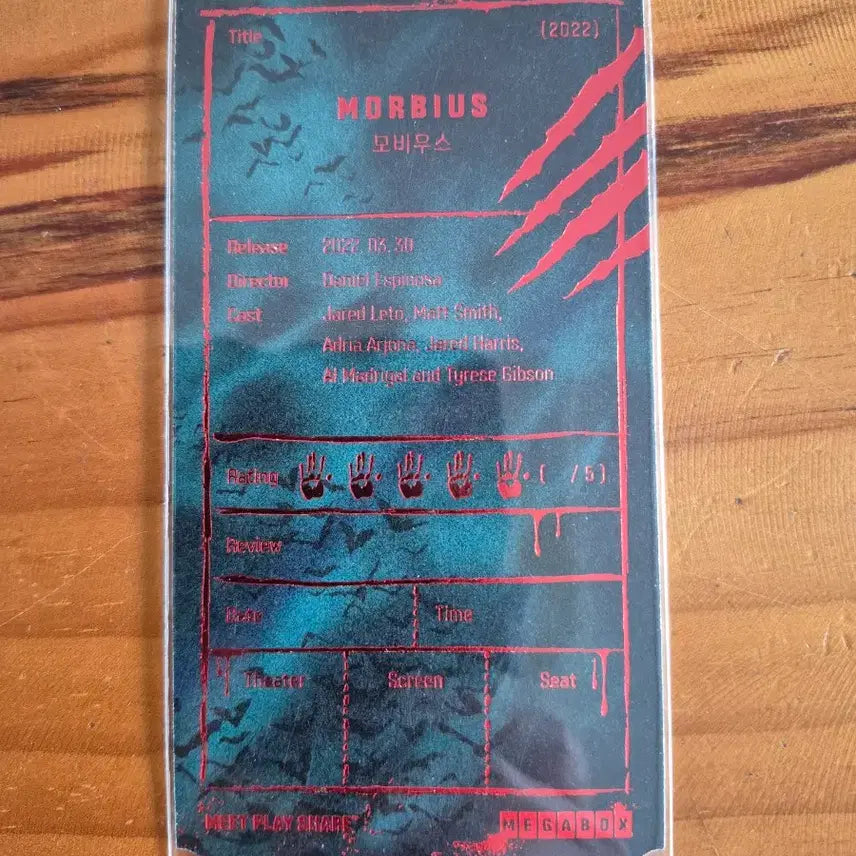 Title (2022)
MORBIUS
모비우스
Release 2022.03.30
Director Daniel Espinosa
Cast Jared Leto, Matt Smith,
Adria Arjona, Jared Harris,
Al Madrigal and Tyrese Gibson
Rating ( /5)
Review
Date Time
Theater Screen Seat
MEET PLAY SHARE MEGABOX